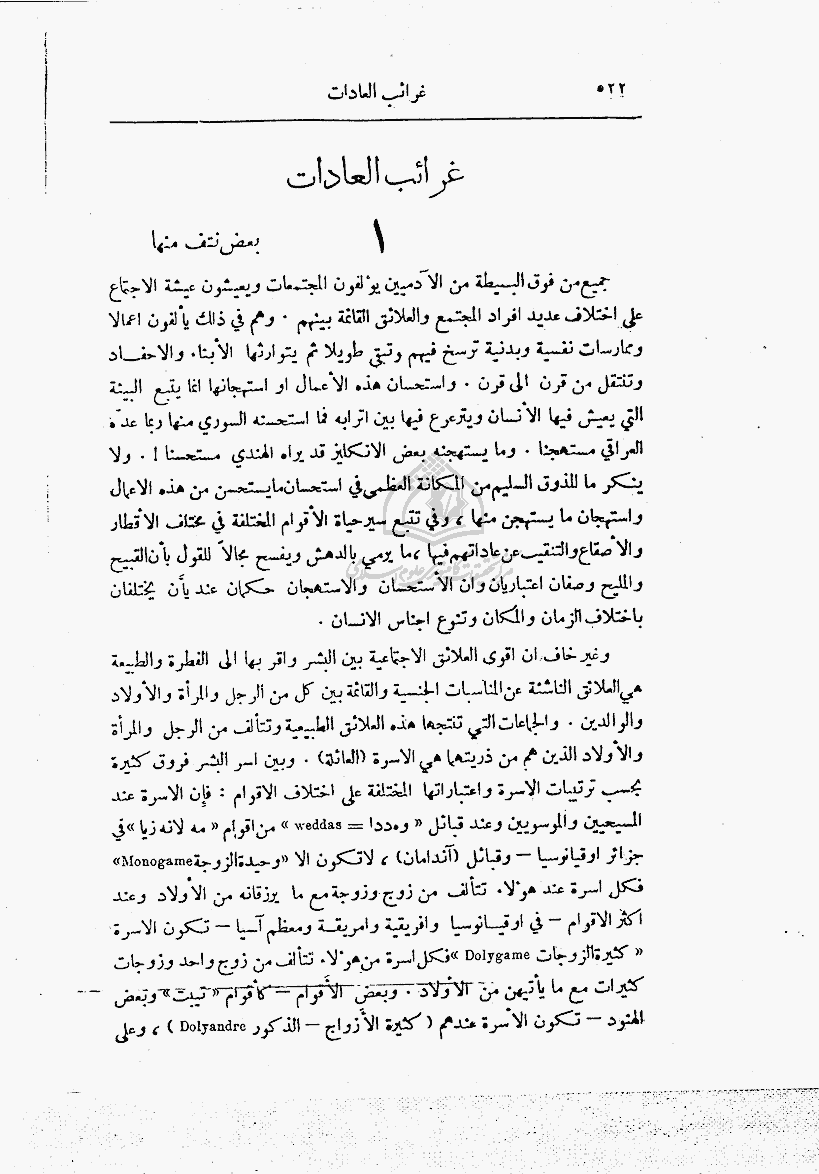 ٥٢٢
غرائب العادات
غرائب العادات
١
بعض نتف منها
جميع من فوق البسيطة من الآدميين يؤلفون المجتمعات ويعيشون عيشة الاجتماع
على اختلاف عديد افراد المجتمع والعلائق القائمة بينهم . وهم في ذلك يألفون اعمالا
وممارسات نفسية وبدنية ترسخ فيهم وتبقى طويلا ثم يتوارثها الأبناء والاحفاد
وتنتقل من قرن الى قرن . واستحسان هذه الأعمال او استهجانها انما يتبع البيئة
التي يعيش فيها الأنسان ويترعرع فيها بين اترابه فما استحسنه السوري منها ربما عدّه
العراقي مستهجنا . وما يستهجنه بعض الانكليز قد يراه الهندي مستحسنا ! . ولا
ينكر ما للذوق السليم من المكانة العظمى في استحسان ما يستحسن من هذه الاعمال
واستهجان ما يستهجن منها ، وفي تتبع سير حياة الأقوام المختلفة في مختلف الأقطار
والأصقاع والتنقيب عن عاداتهم فيها ، ما يرمي بالدهش ويفسح مجالاً للقول بأن القبيح
والمليح وصفان اعتباريان وان الأستحسان والاستهجان حكمان عنديان يختلفان
باختلاف الزمان والمكان وتنوع اجناس الانسان .
وغير خاف ان اقوى العلائق الاجتماعية بين البشر واقربها الى الفطرة والطبيعة
هي العلائق الناشئة عن المناسبات الجنسية والقائمة بين كل من الرجل والمرأة والأولاد
والوالدين . والجماعات التي تنتجها هذه العلائق الطبيعية وتتألف من الرجل والمرأة
والأولاد الذين هم من ذريتهما هي الاسرة (العائلة) . وبين اسر البشر فروق كثيرة
بحسب ترتيبات الاسرة واعتباراتها المختلفة على اختلاف الاقوام : فإن الاسرة عند
المسيحيين والموسويين وعند قبائل « وه ددا = weddas » من اقوام « مه لانه زيا » في
جزائر اوقيانوسيا — وقبائل (آندامان) ، لا تكون الا «وحيدة الزوجة Monogame»
فكل اسرة عند هؤلاء تتألف من زوج وزوجة مع ما يرزقانه من الأولاد وعند
اكثر الاقوام — في اوقيانوسيا وافريقية وامريقة ومعظم آسيا — تكون الاسرة
« كثيرة الزوجات Dolygame » فكل اسرة من هؤلاء تتألف من زوج واحد وزوجات
كثيرات مع ما يأتيهن من الأولاد . وبعض الأقوام — كأقوام « تيبت » وبعض
الهنود — تكون الأسرة عندهم ( كثيرة الأزواج — الذكور Dolyandre ) ، وعلى